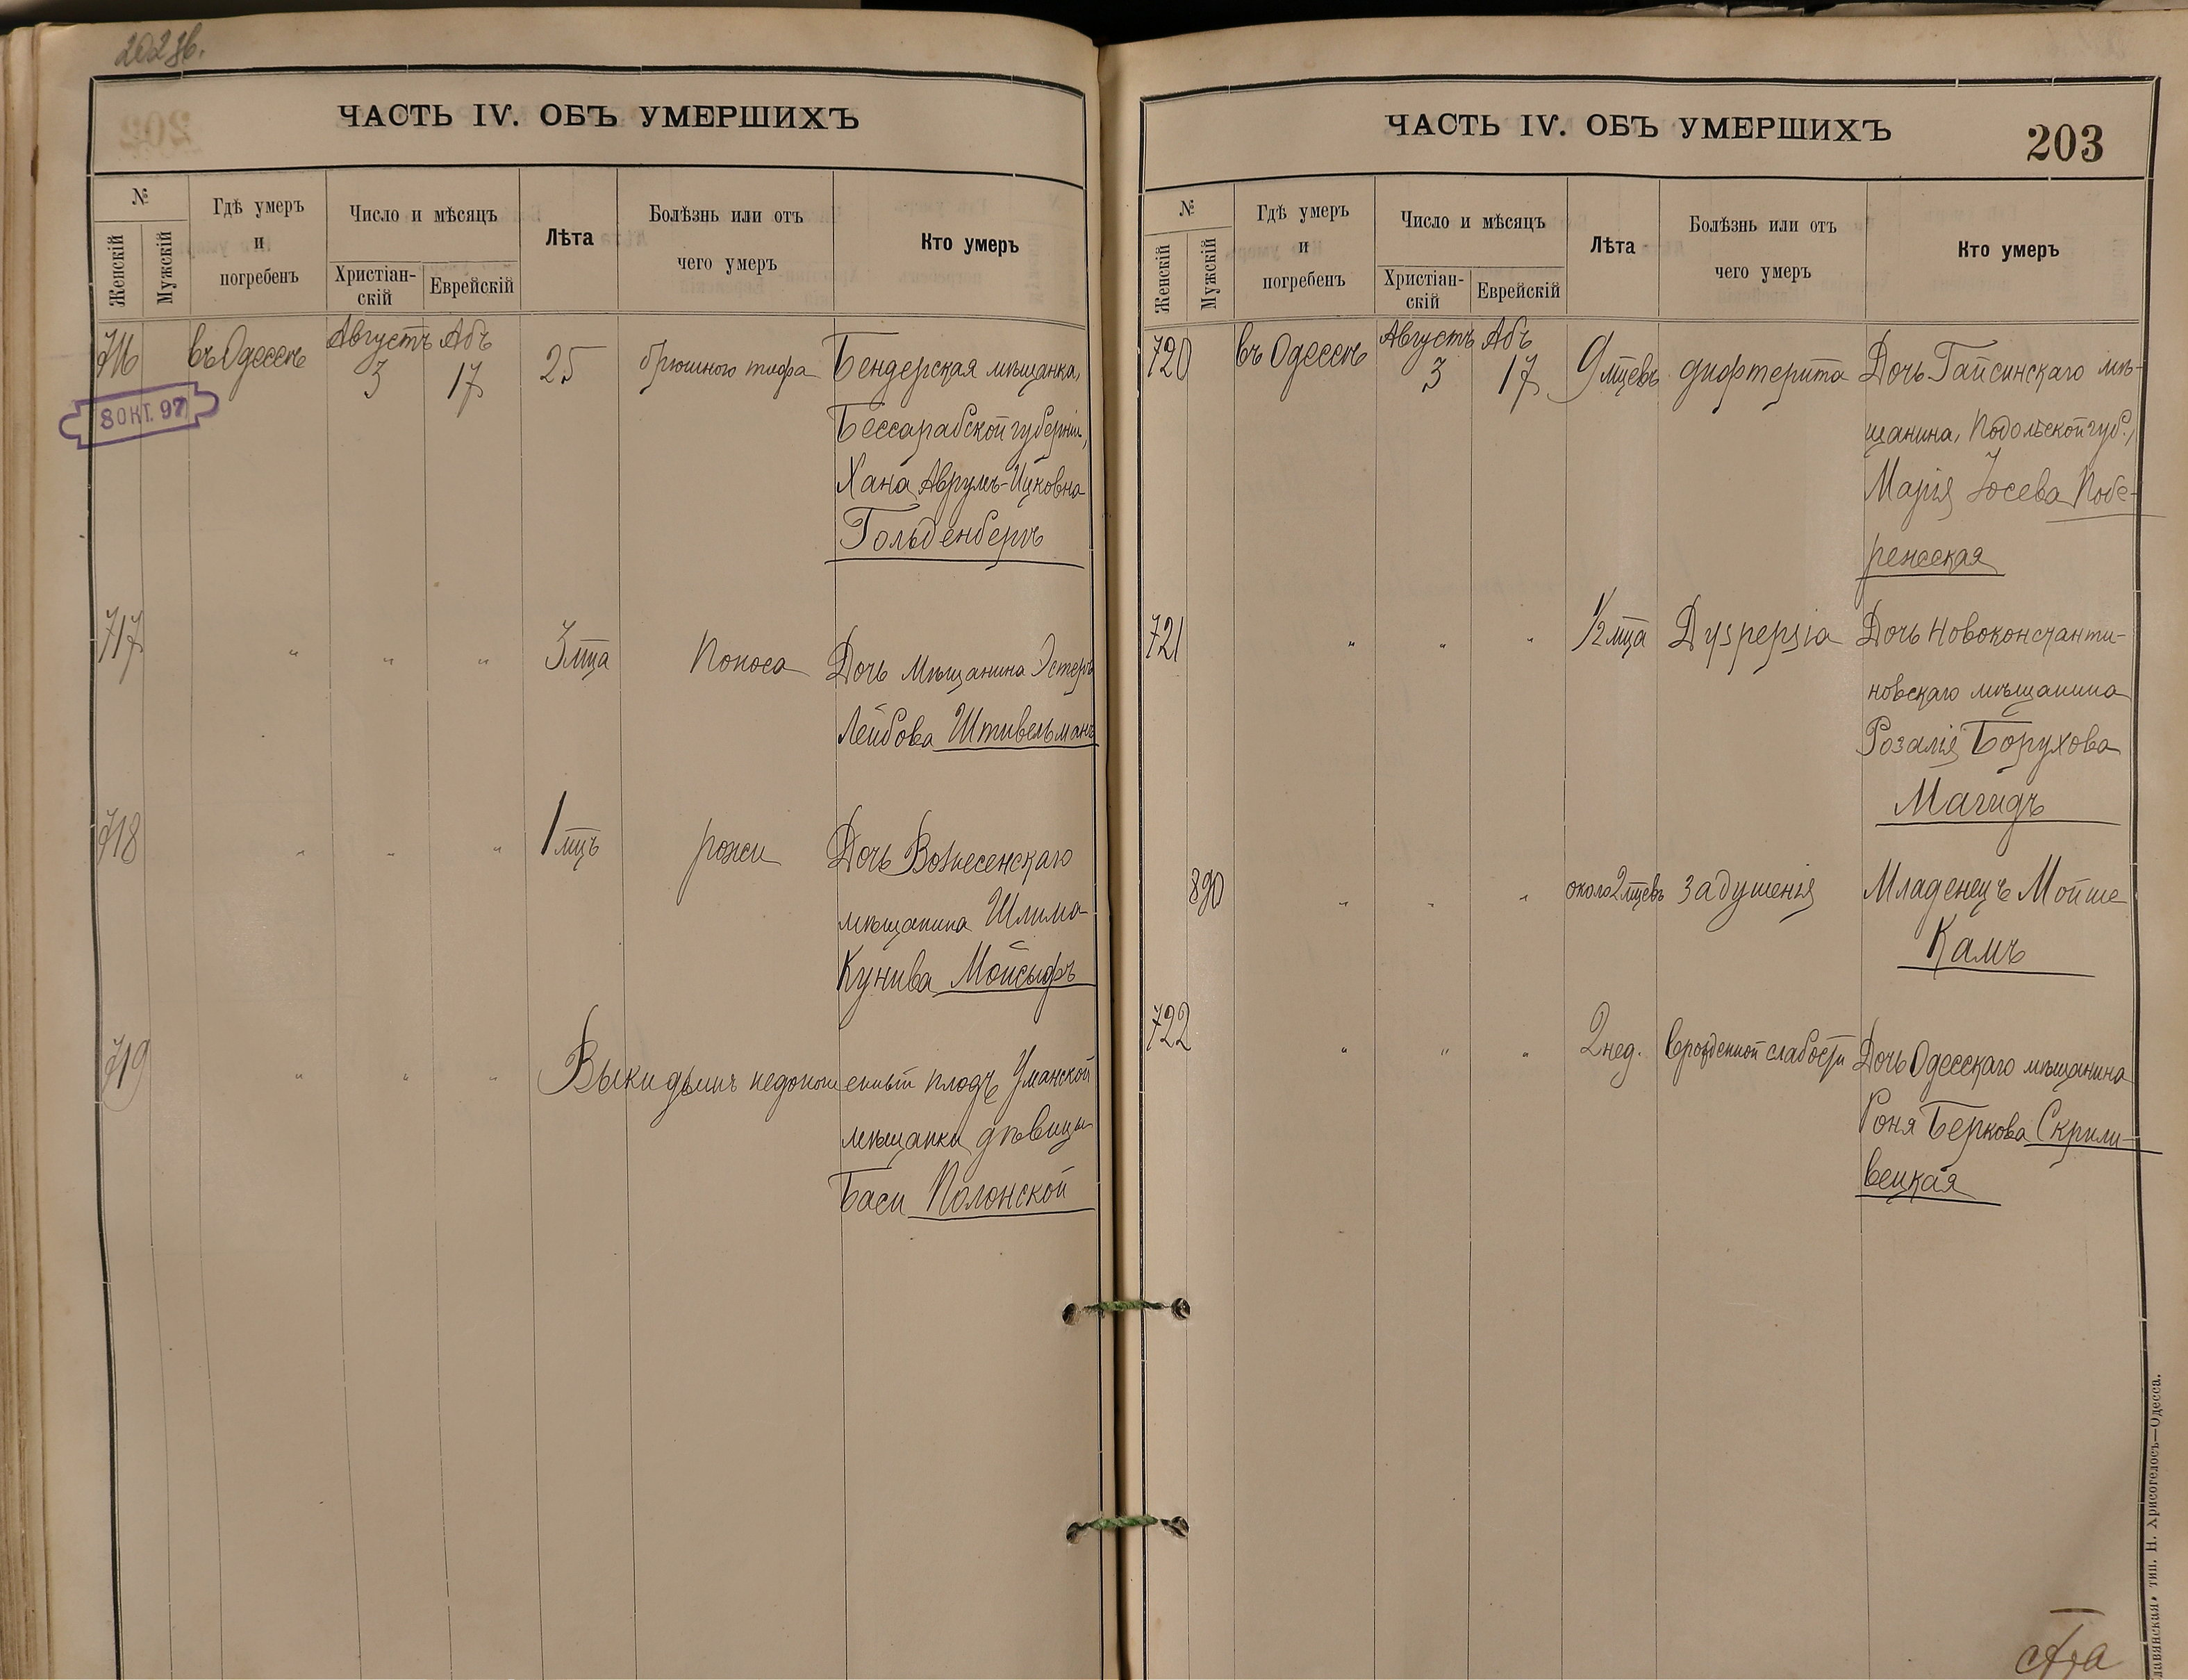 202 зв.
ЧАСТЬ IV. ОБЪ УМЕРШИХЪ
№
Женскій
Мужскій
Гдѣ умеръ
и
погребенъ
Число и мѣсяцъ
Христіан-
скій
Еврейскій
Лѣта
Болѣзнь или отъ
чего умеръ
Кто умеръ
716
въ Одессѣ
Августъ
3
Абъ
17
25
брюшного тифа
Бендерская мѣщанка,
Бессарабской губерніи,
Хана Аврумъ-Ицковна
Гольденбергъ
8 ОКТ. 97
717
" " "
3 мца
Поноса
Дочь мѣщанина Эстеръ
Лейбова Штивельманъ
718
" " "
1 мцъ
рожи
Дочь Вознесенскаго
мѣщанина Шлима
Кунива Мойсыфъ
719
" " "
Выкидышъ недоношенный плодъ Уманской
мѣщанки дѣвицы
Баси Полонской
ЧАСТЬ IV. ОБЪ УМЕРШИХЪ
203
№
Женскій
Мужскій
Гдѣ умеръ
и
погребенъ
Число и мѣсяцъ
Христіан-
скій
Еврейскій
Лѣта
Болѣзнь или отъ
чего умеръ
Кто умеръ
720
въ Одессѣ
Августъ
3
Абъ
17
9 мцевъ
дифтерита
Дочь Гайсинскаго мѣ-
щанина, Подольской губ.,
Марія Іосева Побе-
режская
721
" " "
1/2 мца
Dyspepsia
Дочь Новоконстанти-
новскаго мѣщанина
Розалія Борухова
Магидъ
890
" " "
около 2 мцевъ
задушенія
Младенецъ Мойше
Камъ
722
" " "
2 нед.
врожденной слабости
Дочь Одесскаго мѣщанина
Роня Беркова Скрили-
вецкая
тип. Н. Хрисогелосъ—Одесса.